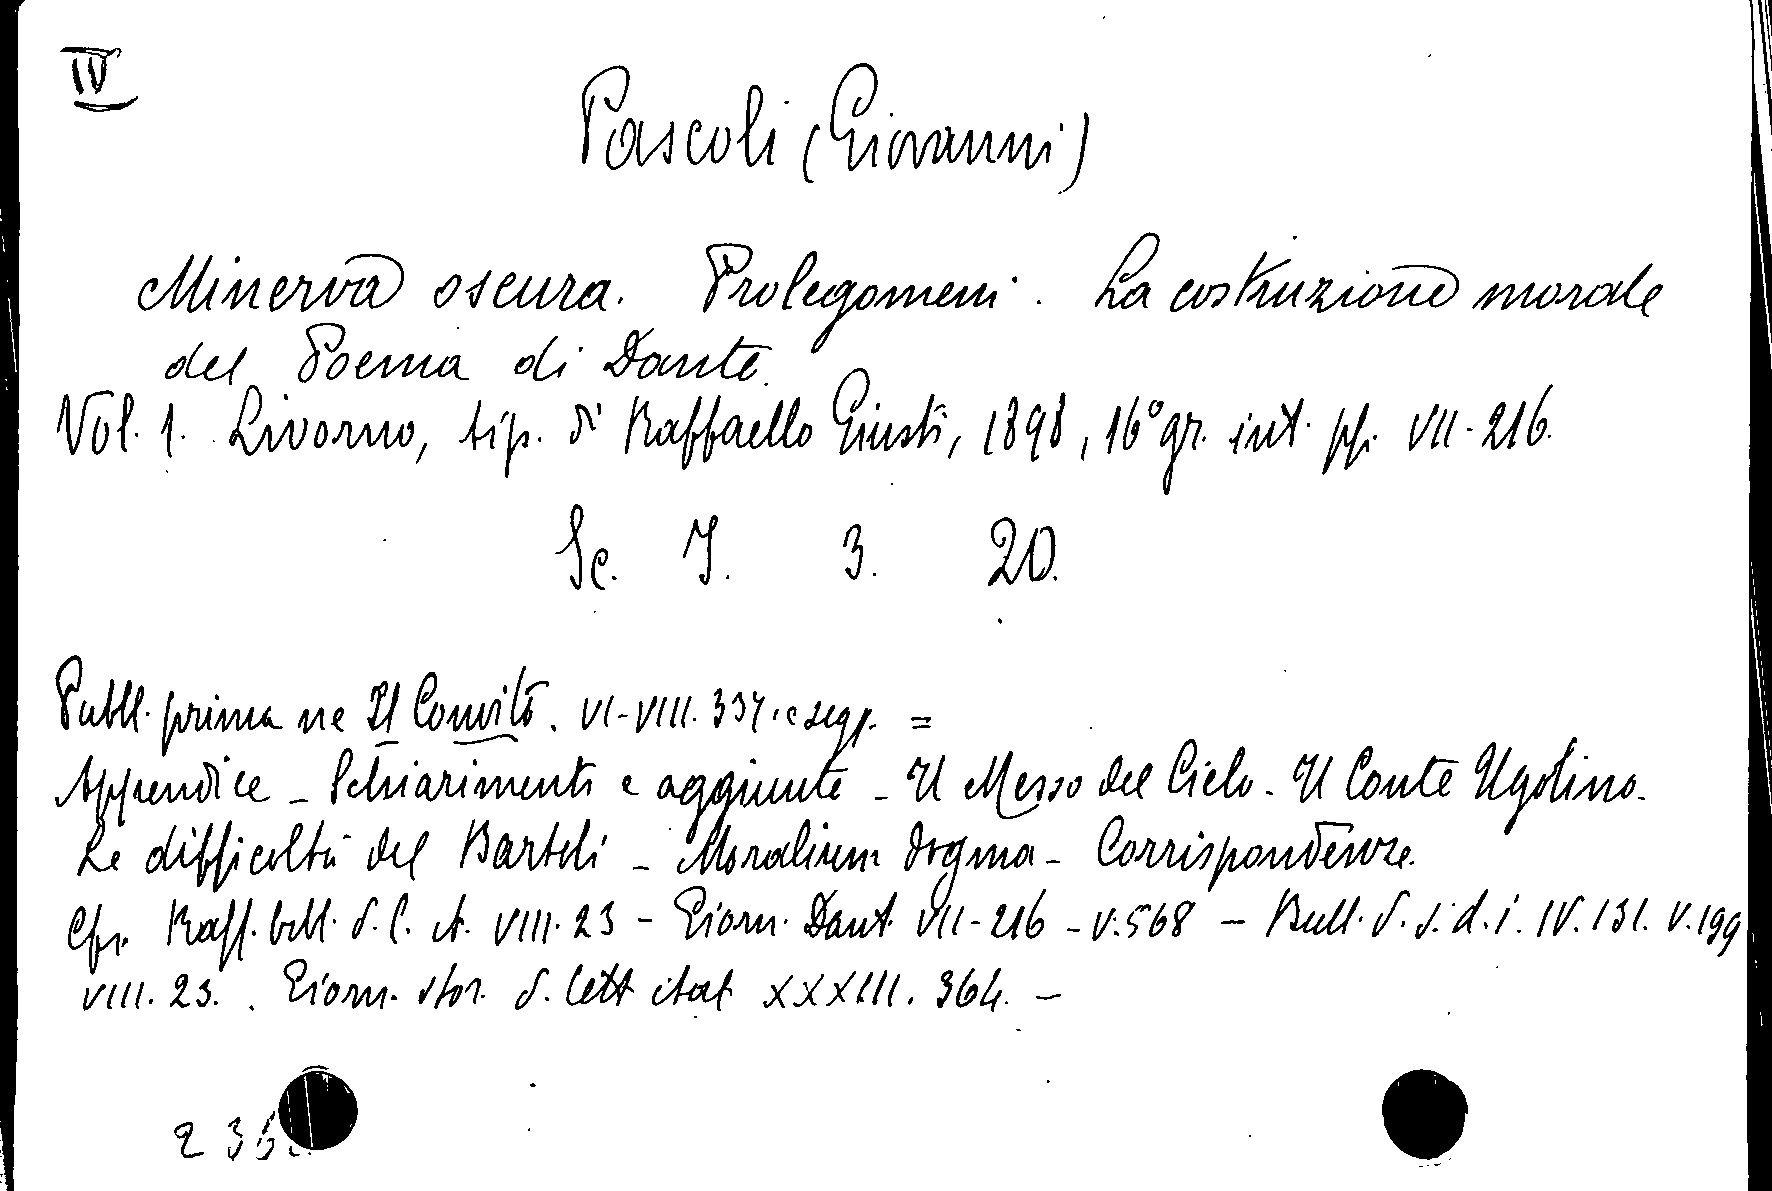 IV
Pascoli (Giovanni)
Minerva oscura. Prolegomeni. La costruzione morale
del Poema di Dante.
Vol. 1. Livorno, tip. di Raffaello Giusti, 1898, 16° gr. int. pp. VII-216.
Sc. I. 3. 20.
Pubbl. prima ne Il Convito. VI-VIII. 337. e segg. =
Appendice - Schiarimenti e aggiunte - Il Messo del Cielo - Il Conte Ugolino -
Le difficoltà del Bartoli - Moralium dogma - Corrispondenze.
Cfr. Raff. bibl. d. l. it. VIII. 23 - Giorn. Dant. VII-216 - V. 568 - Bull. d. s. d. i. IV. 131. V. 199
VIII. 23. . Giorn. stor. d. lett ital XXXIII. 364. -